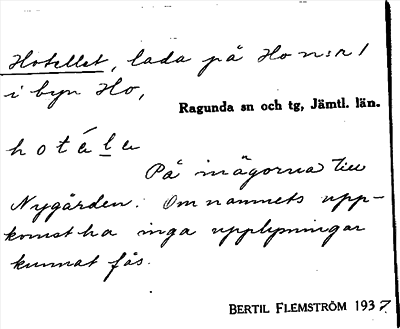 Hotellet, lada på Ho n:r 1
i byn Ho,
Ragunda sn och tg, Jämtl. län.
hotéle
På inägorna till
Nygården. Om namnets upp-
komst ha inga upplysningar
kunnat fås.
BERTIL FLEMSTRÖM 1937